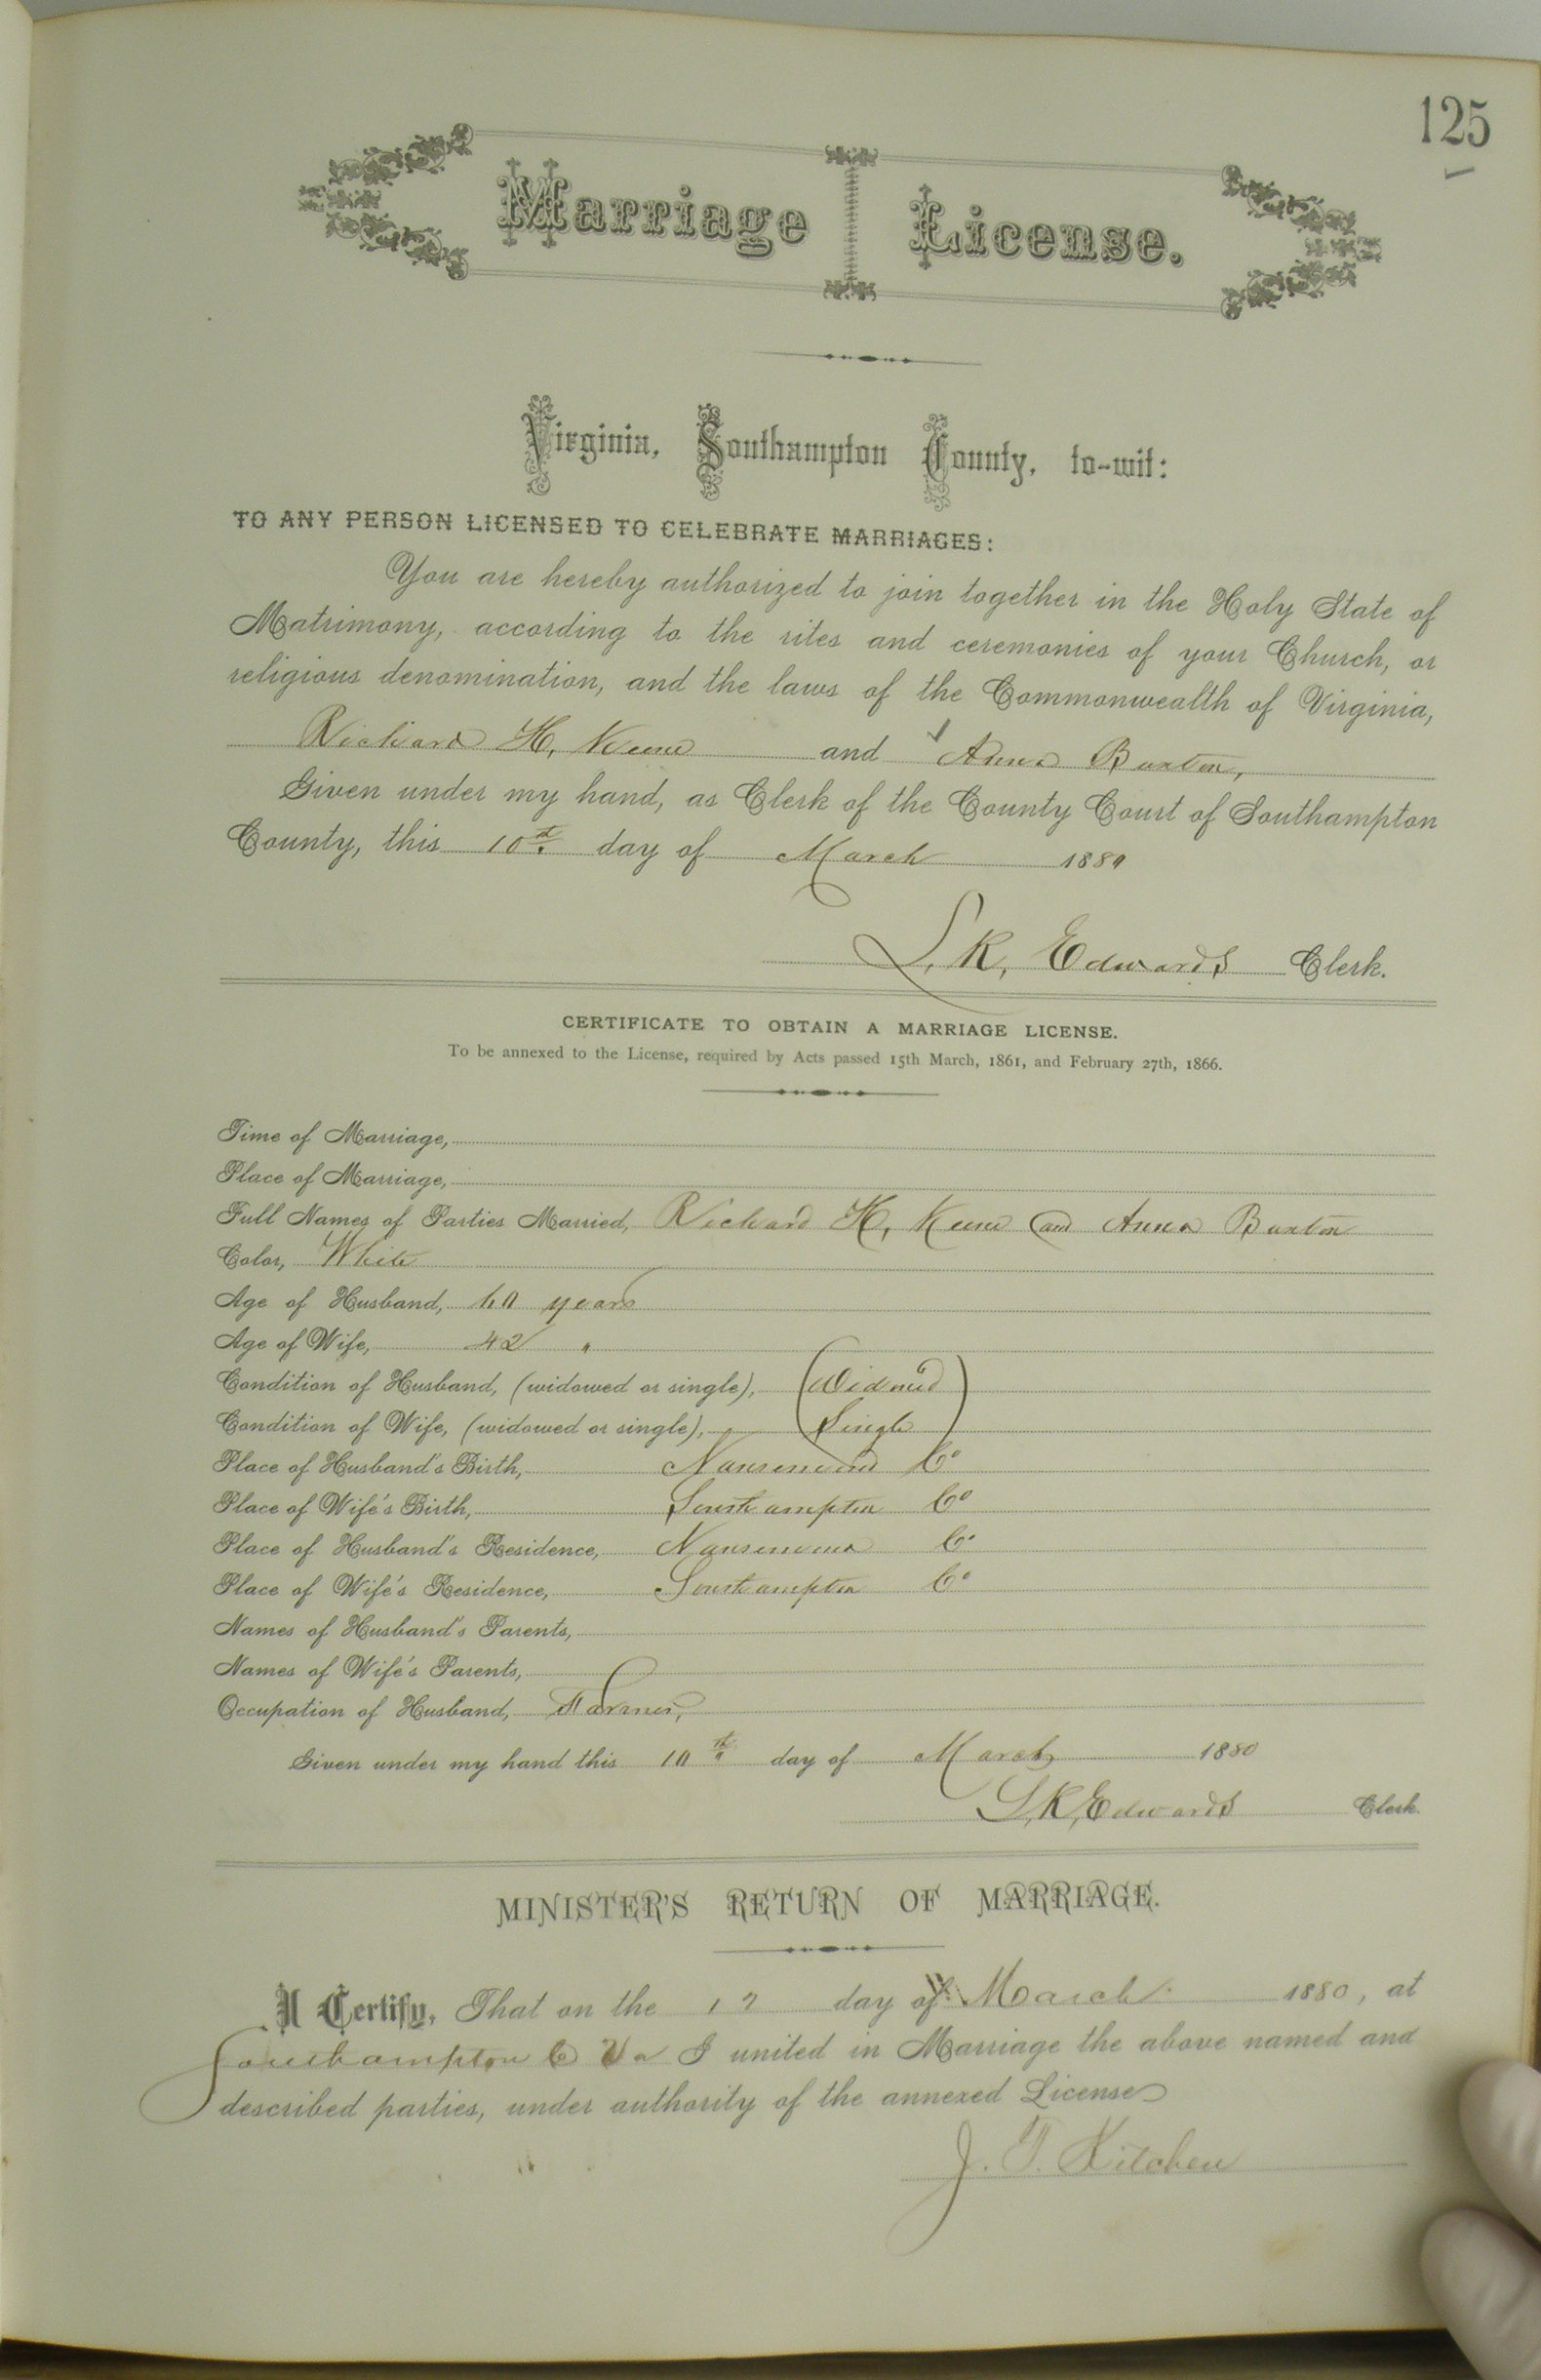 125
Marriage License.
Virginia, Southampton County, to-wit:
TO ANY PERSON LICENSED TO CELEBRATE MARRIAGES:
You are hereby authorized to join together in the Holy State of
Matrimony, according to the rites and ceremonies of your Church, or
religious denomination, and the laws of the Commonwealth of Virginia,
Richard H. and Anna Buxton,
Given under my hand, as Clerk of the County Court of Southampton
County, this 10th day of March 1880
L. R. Edwards Clerk.
CERTIFICATE TO OBTAIN A MARRIAGE LICENSE.
To be annexed to the License, required by Acts passed 15th March, 1861, and February 27th, 1866.
Time of Marriage,
Place of Marriage,
Full Names of Parties Married, Richard H. and Anna Buxton
Color, White
Age of Husband, 60 years
Age of Wife, 42 "
Condition of Husband, (widowed or single), Widowed
Condition of Wife, (widowed or single), Single
Place of Husband's Birth, Nansemond Co
Place of Wife's Birth, Southampton Co
Place of Husband's Residence, Nansemond Co
Place of Wife's Residence, Southampton Co
Names of Husband's Parents,
Names of Wife's Parents,
Occupation of Husband, Farmer,
Given under my hand this 10th day of March 1880
L. R. Edwards Clerk.
MINISTER'S RETURN OF MARRIAGE.
I Certify, That on the day of March 1880, at
Southampton Co Va I united in Marriage the above named and
described parties, under authority of the annexed License
J. T. Kitchen